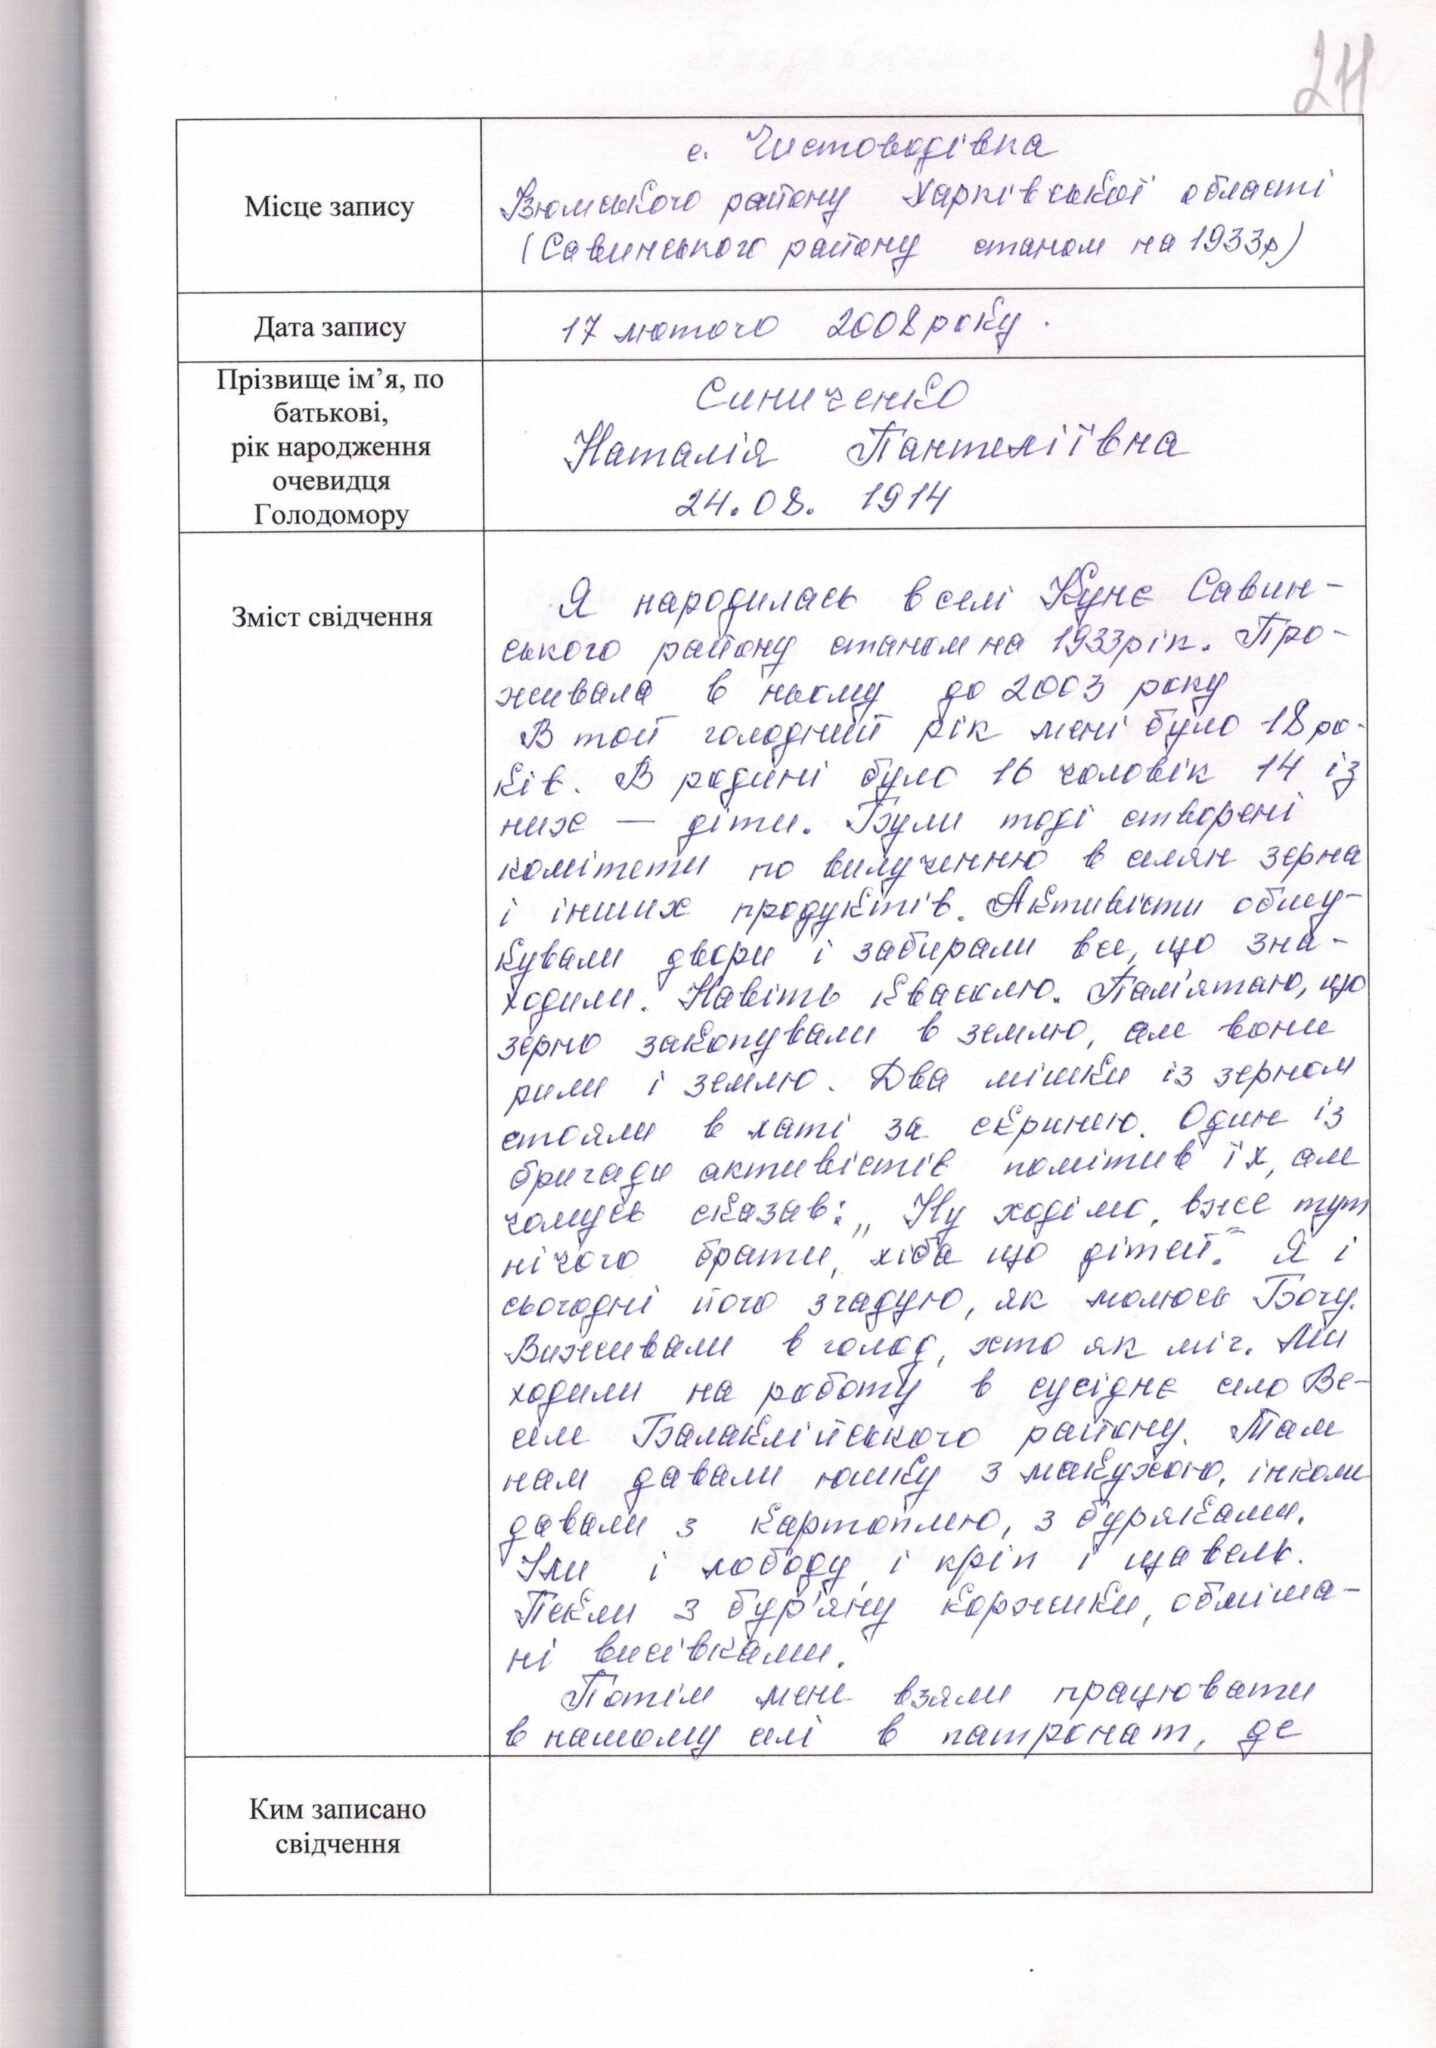 24
с. Чистоводівка
Місце запису
Ізюмського району Харківської області
(Савинського району станом на 1933р)
Дата запису
17 лютого 2008 року.
Прізвище ім’я, по
батькові,
рік народження
очевидця
Голодомору
Синиченко
Наталія Пантеліївна
24.08. 1914
Зміст свідчення
Я народилась в селі Куньє Савин-
ського району станом на 1933 рік. Про-
живала в ньому до 2003 року
В той голодний рік мені було 18 ро-
ків. В родині було 16 чоловік 14 із
них — діти. Були тоді створені
комітети по вилученню в селян зерна
і інших продуктів. Активісти обшу-
кували двори і забирали все, що зна-
ходили. Навіть квасолю. Пам'ятаю, що
зерно закопували в землю, але вони
рили і землю. Два мішки із зерном
стояли в хаті за скринею. Один із
бригади активістів помітив їх, але
чомусь сказав: „Ну ходімо, вже тут
нічого брати, хіба що дітей." Я і
сьогодні його згадую, як молюсь Богу.
Виживали в голод, хто як міг. Ми
ходили на роботу в сусіднє село Ве-
селе Балаклійського району. Там
нам давали юшку з макухою, інколи
давали з картоплею, з буряками.
Їли і лободу, і кріп і щавель.
Пекли з бур'яну коржики, обліпле-
ні висівками.
Потім мене взяли працювати
в нашому селі в патронат, де
Ким записано
свідчення